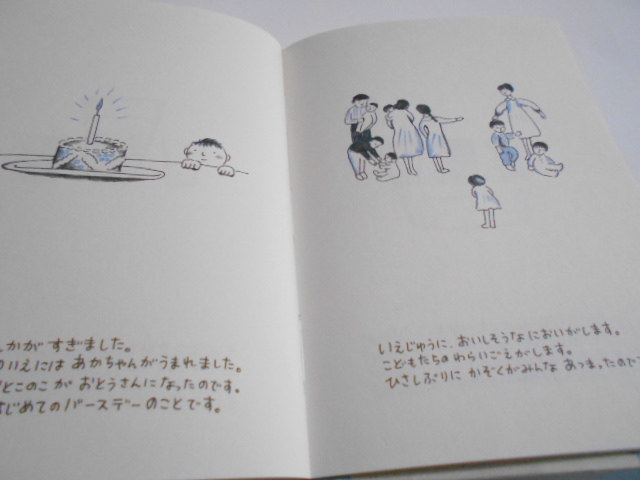 かが すぎました。
いえには あかちゃんが うまれました。
とこのこ が おとうさんに なったのです。
じめての バースデー のことです。
いえじゅうに、おいしそうな においがします。
こどもたちの わらいごえがします。
ひさしぶりに かぞくがみんな あつまったので